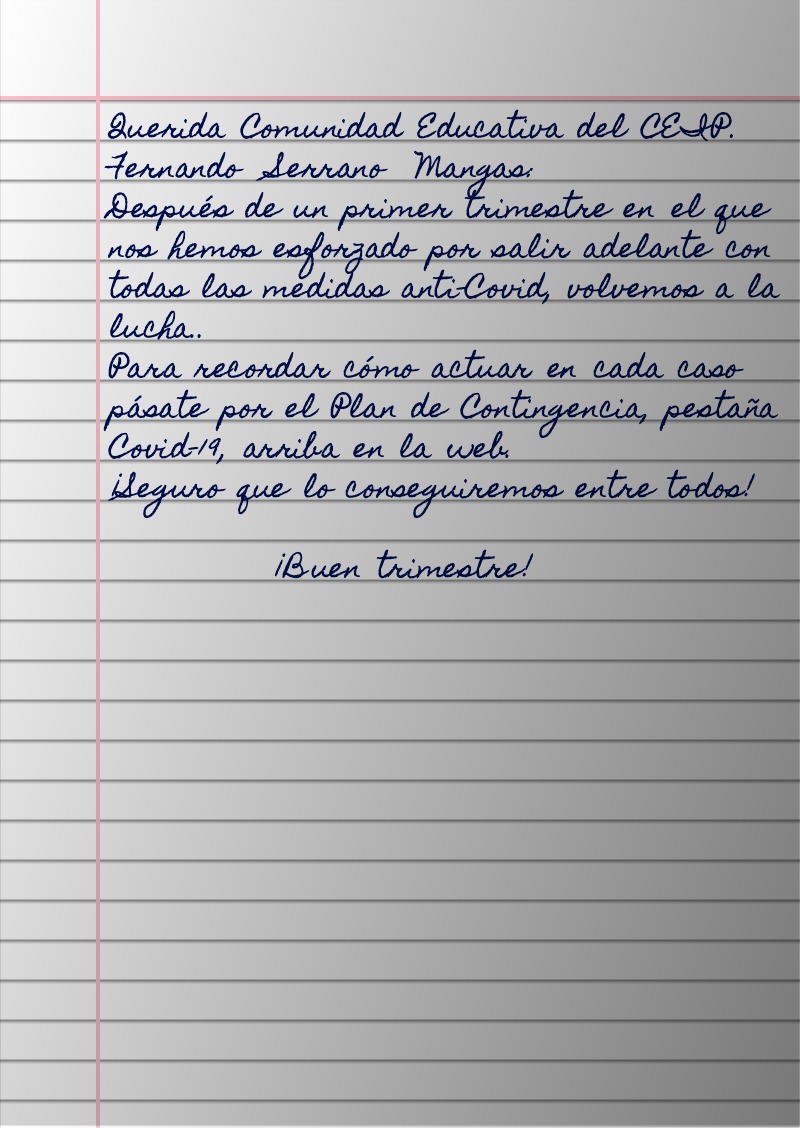 Querida Comunidad Educativa del CEIP.
Fernando Serrano Mangas:
Después de un primer trimestre en el que
nos hemos esforzado por salir adelante con
todas las medidas anti-Covid, volvemos a la
lucha..
Para recordar cómo actuar en cada caso
pásate por el Plan de Contingencia, pestaña
Covid-19, arriba en la web.
¡Seguro que lo conseguiremos entre todos!
¡Buen trimestre!